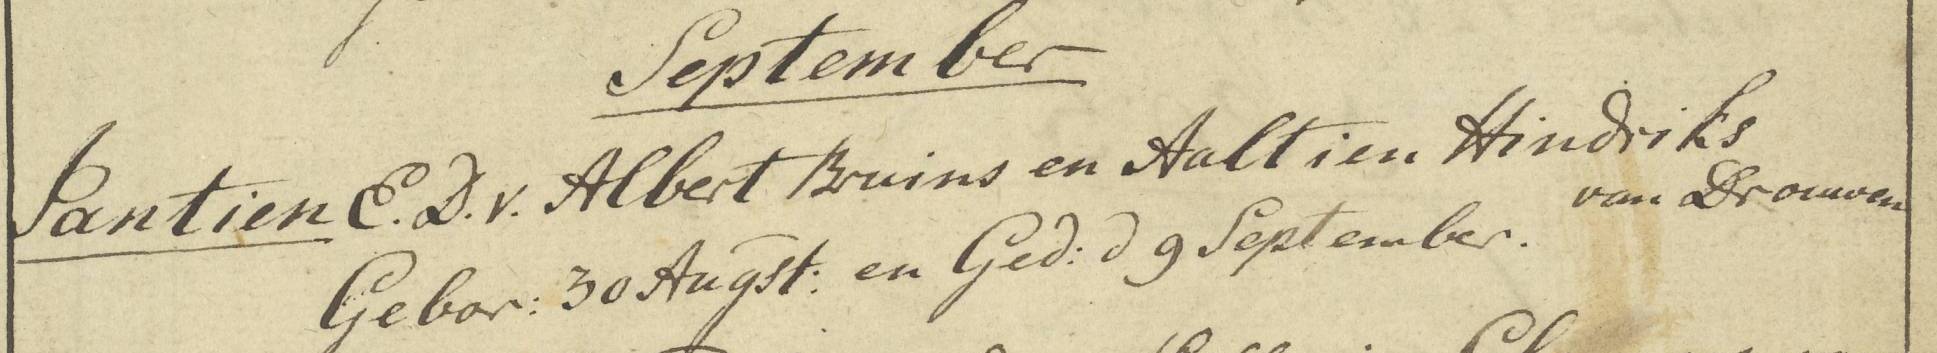 September
Jantien E. D. v. Albert Bruins en Aaltien Hindriks
van Drouwen
Gebor: 30 Augst: en Ged: d 9 September.